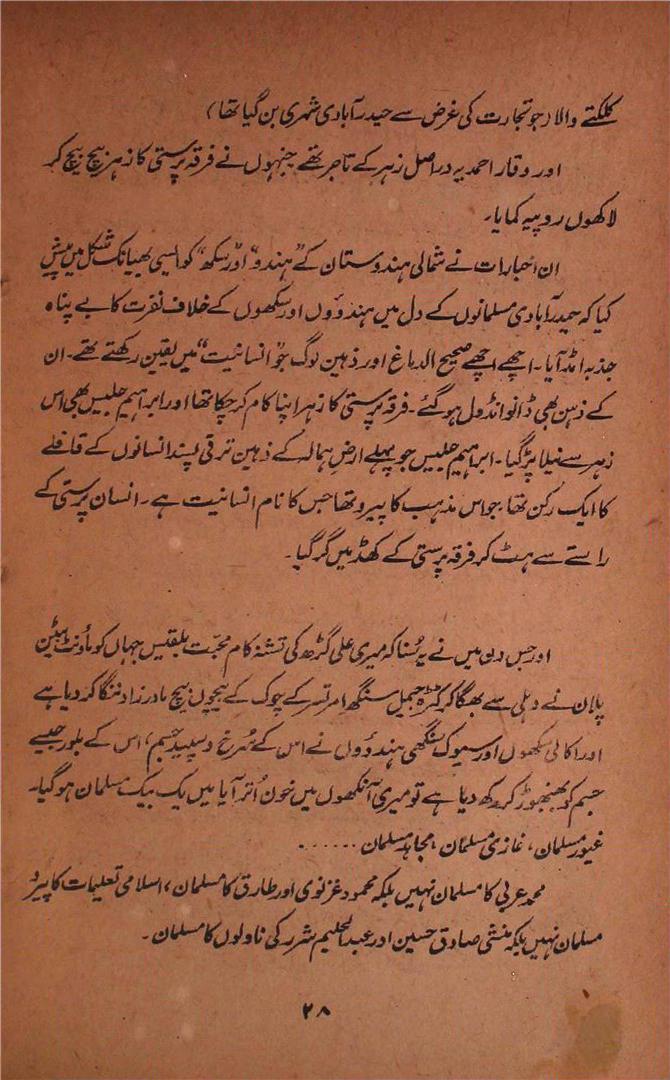 کلکتے والا (جو تجارت کی غرض سے حیدرآبادی شہری بن گیا تھا)
اور وقار احمد یہ دراصل زہر کے تاجر تھے جنہوں نے فرقہ پرستی کا زہر بیچ بیچ کر
لاکھوں روپیہ کمایا۔
ان اخبارات نے شمالی ہندوستان کے "ہندو" اور "سکھ" کو ایسی بھیانک شکل میں پیش
کیا کہ حیدرآبادی مسلمانوں کے دل میں ہندوؤں اور سکھوں کے خلاف نفرت کا بے پناہ
جذبہ امڈ آیا۔ اچھے اچھے صحیح الدماغ اور ذہین لوگ جو "انسانیت" میں یقین رکھتے تھے۔ ان
کے ذہن بھی ڈانواںڈول ہو گئے۔ فرقہ پرستی کا زہر اپنا کام کر چکا تھا اور ابراہیم جلیس بھی اس
زہر سے نیلا پڑ گیا۔ ابراہیم جلیس جو پہلے ارضِ ہمالہ کے ذہین ترقی پسند انسانوں کے قافلے
کا ایک رکن تھا، جو اس مذہب کا پیرو تھا جس کا نام انسانیت ہے۔ انسان پرستی کے
راستے سے ہٹ کر فرقہ پرستی کے کھڈ میں گر گیا۔
اور جس دن میں نے یہ سُنا کہ میری علی گڑھ کی تشنہ کام محبّت بلقیس جہاں کو ماؤنٹ بیٹن
پلان نے دہلی سے بھگا کر کڑہ جمیل سنگھ امرتسر کے چوک کے بیچوں بیچ مادر زاد ننگا کر دیا ہے
اور اکالی سکھوں اور سیوک سنگھی ہندوؤں نے اس کے سُرخ و سپید جسم، اس کے بلور جیسے
جسم کو بھنبھوڑ کر رکھ دیا ہے تو میری آنکھوں میں خون اُتر آیا میں یک بیک مسلمان ہو گیا۔
غیور مسلمان، غازی مسلمان، مجاہد مسلمان ......
محمد عربی کا مسلمان نہیں بلکہ محمود غزنوی اور طارق کا مسلمان، اسلامی تعلیمات کا پیرو
مسلمان نہیں بلکہ منشی صادق حسین اور عبدالحلیم شرر کی ناولوں کا مسلمان۔
۲۸